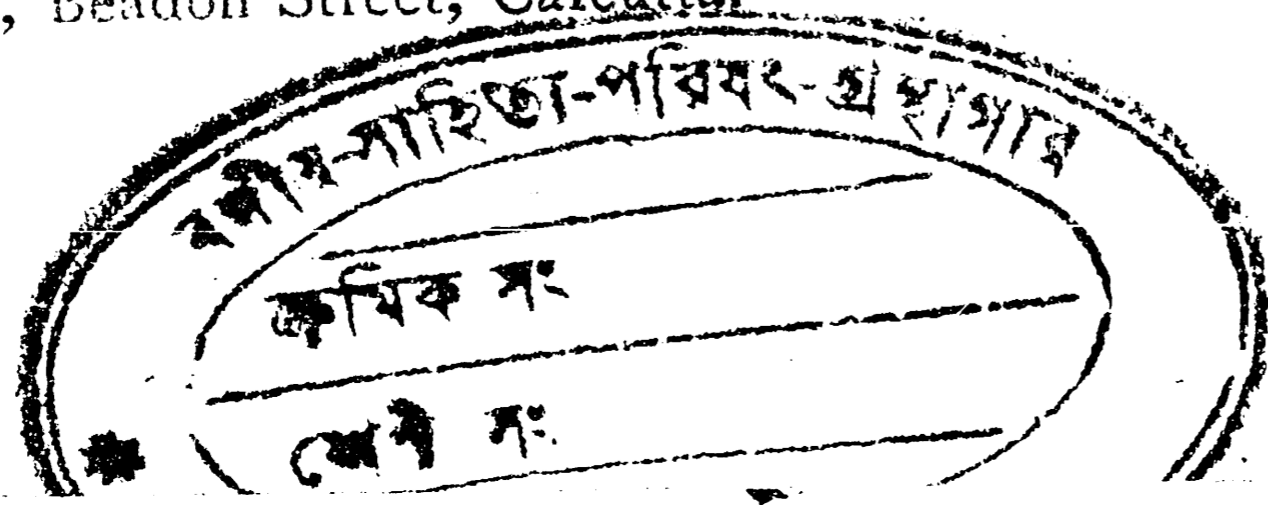 , Beadon Street, Calcutta.
বঙ্গীয়-সাহিত্য-পরিষৎ-গ্রন্থাগার
ক্রমিক নং
শ্রেণী নং